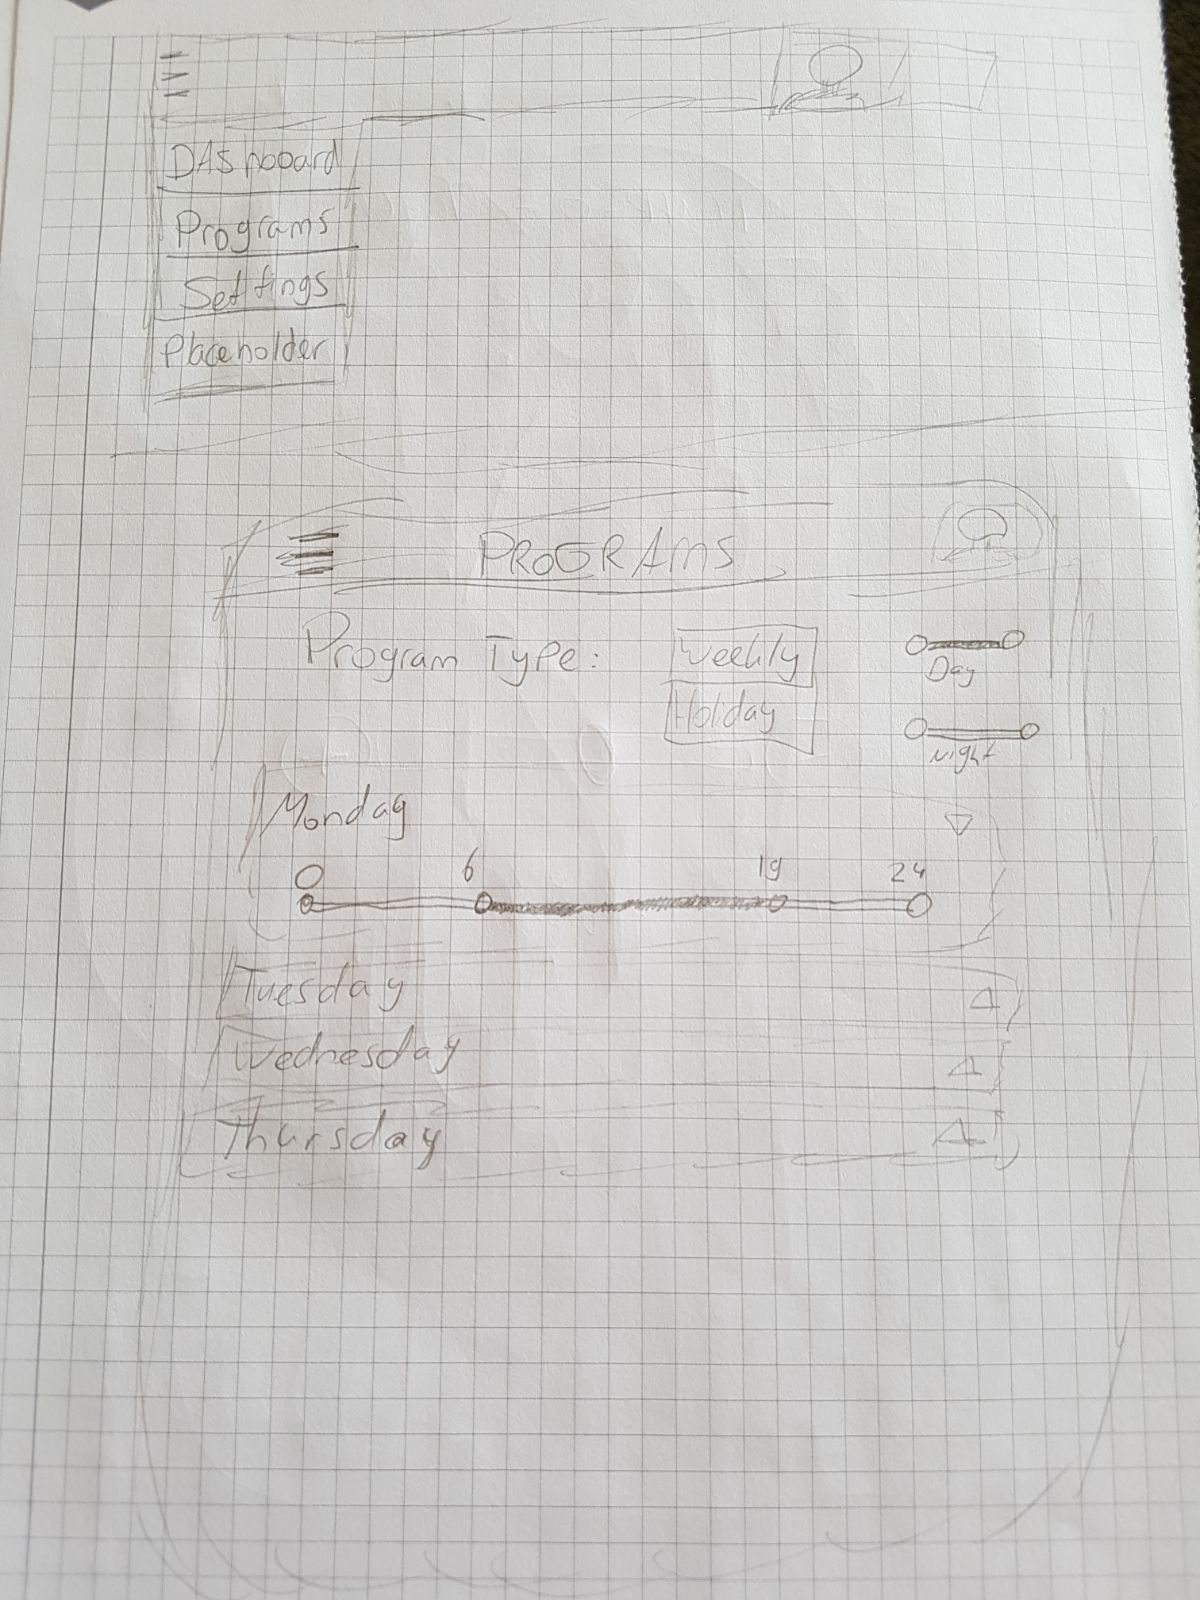 DAshboard
Programs
Settings
Placeholder
PROGRAMS
Program Type:
Weekly
Holiday
Day
Night
Monday
0 6 19 24
Tuesday
Wednesday
Thursday